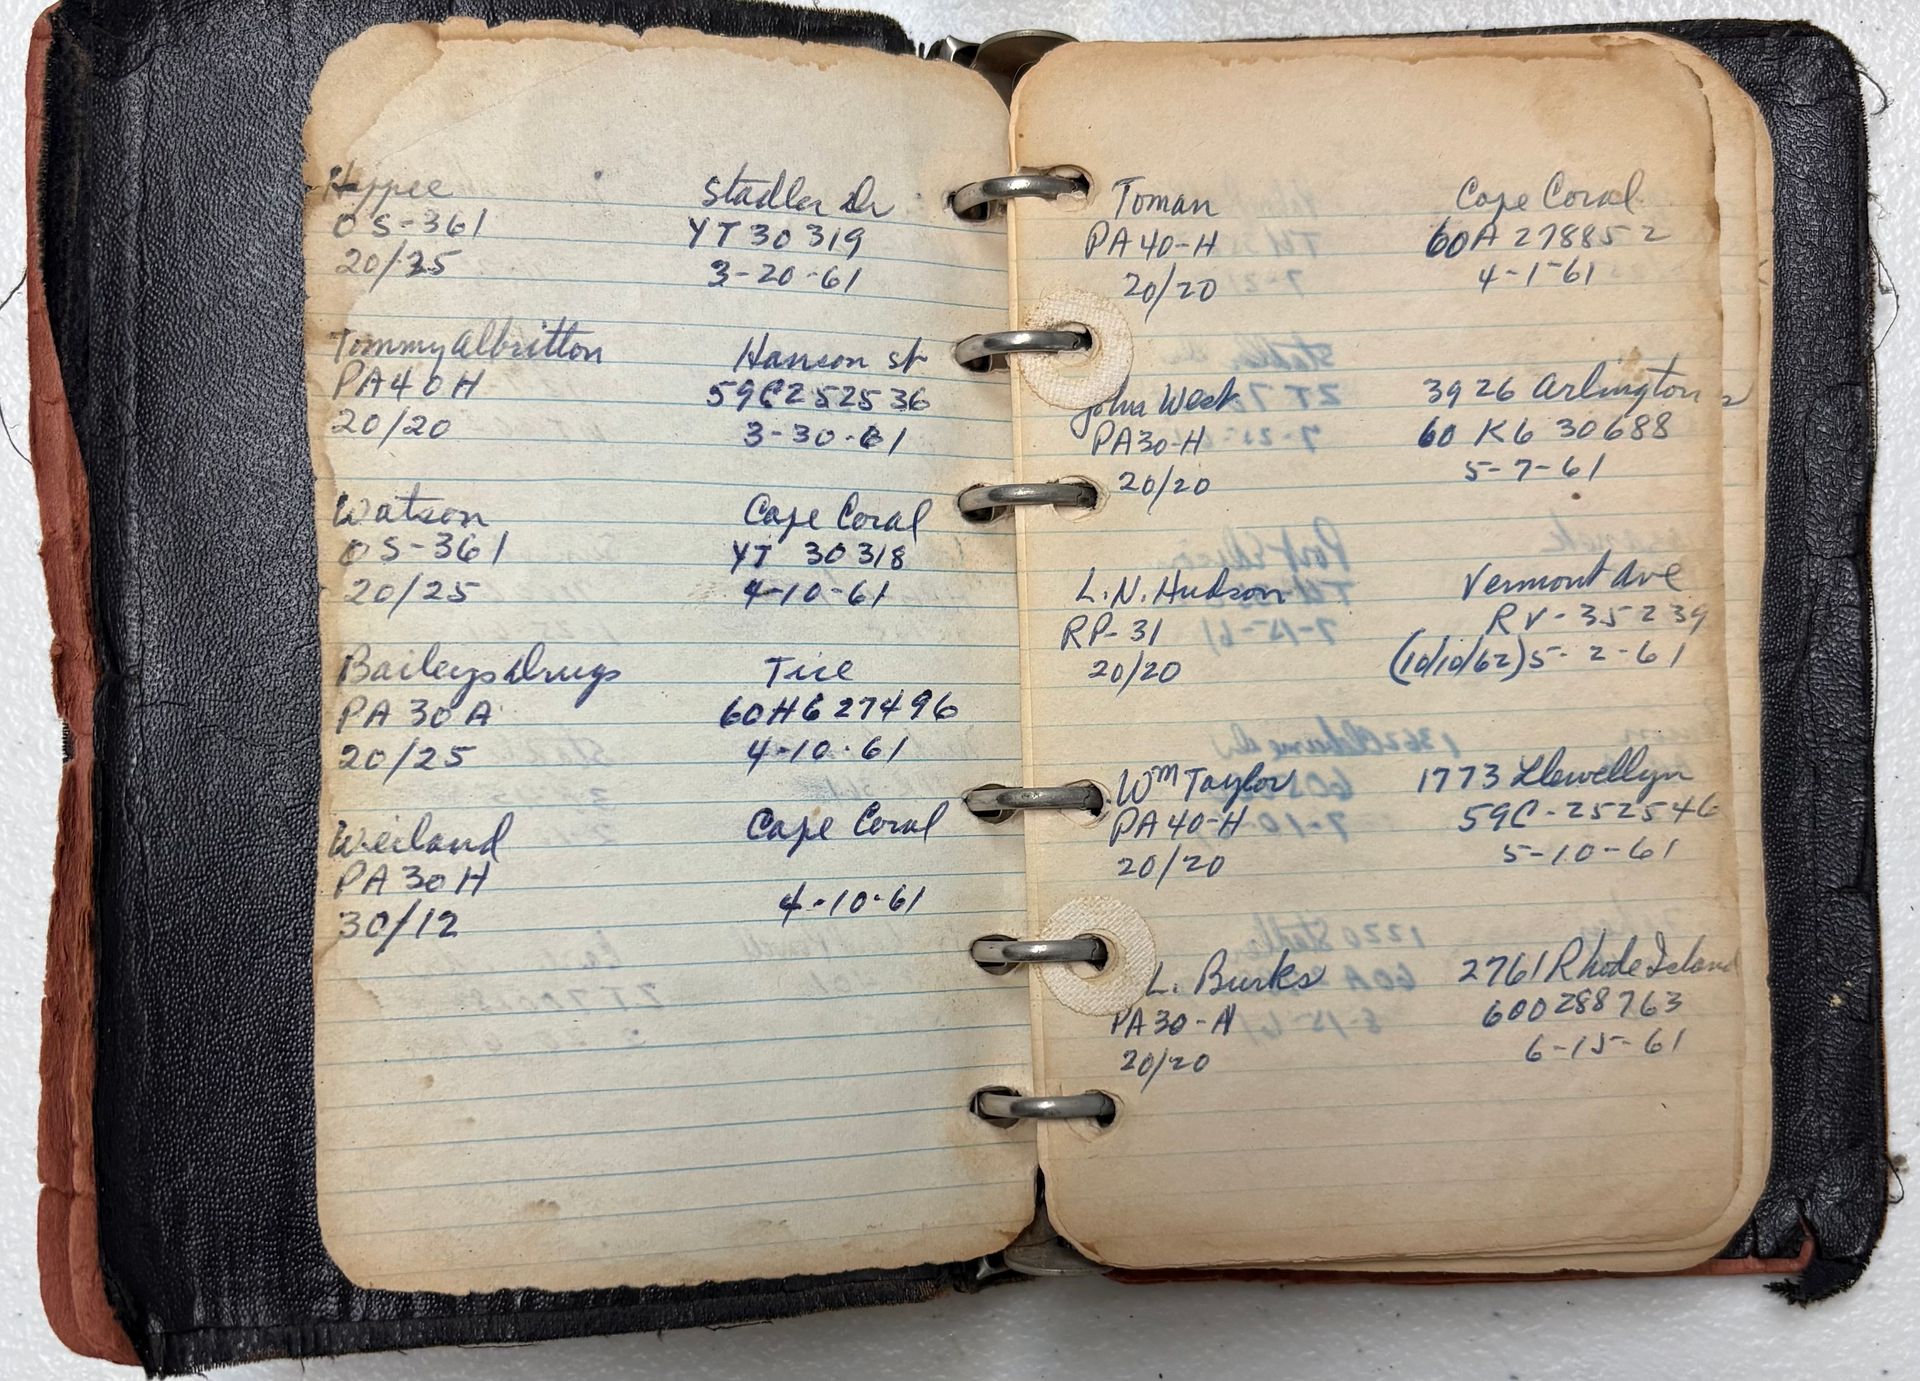 Hyppe Stadler Dr
OS-361 YT 30319
20/25 3-20-61
Tommy Albritton Hanson st
PA40H 59C252536
20/20 3-30-61
Watson Cape Coral
OS-361 YT 30318
20/25 4-10-61
Baileys Drugs Tice
PA30A 60H627496
20/25 4-10-61
Weiland Cape Coral
PA30H
30/12 4-10-61
Toman Cape Coral
PA40-H 60A278852
20/20 4-1-61
John West 3926 Arlington
PA30-H 60 K630688
20/20 5-7-61
L.N. Hudson Vermont Ave
RP-31 RV-35239
20/20 (10/10/62) 5-2-61
Wm Taylor 1773 Llewellyn
PA40-H 59C-252546
20/20 5-10-61
L. Burks 2761 Rhode Island
PA30-A 600288763
20/20 6-15-61